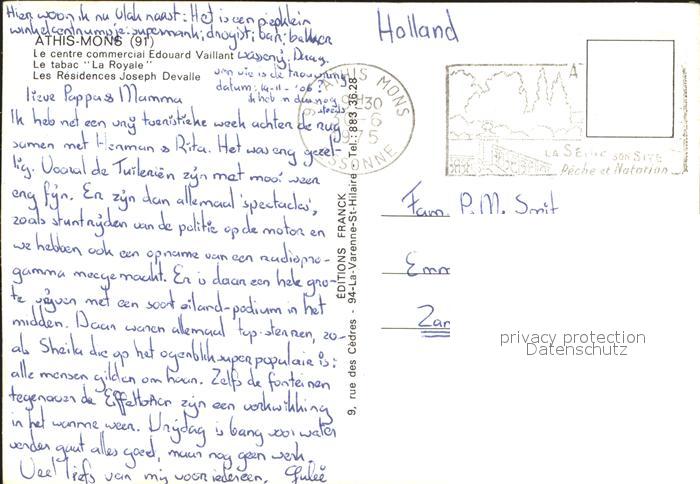 Hier woon ik nu vlak naast: Het is een piepklein
winkelcentrumpje: supermarkt; drogist; bar; bakker
ATHIS-MONS (91)
Le centre commercial Edouard Vaillant wasserij. Draag
Le tabac "La Royale"
Les Résidences Joseph Devalle
van wie is de trouwring
datum: 14-11-'06?
ik heb n dus nog
steeds
lieve Pappa & Mamma
Ik heb net een vrij toeristieke week achter de rug
samen met Herman & Rita. Het was erg gezel-
lig. Vooral de Tuilerieën zijn met mooi weer
erg fijn. Er zijn dan allemaal 'spectacles',
zoals stuntrijden van de politie op de motor en
we hebben ook een opname van een radiopro-
gamma meegemaakt. Er is daar een hele gro-
te vijver met een soort eiland-podium in het
midden. Daar waren allemaal top-sterren, zo-
als Sheila die op het ogenblik super populair is:
alle mensen gilden om haar. Zelfs de fonteinen
tegenover de Eiffeltoren zijn een verkwikking
in het warme weer. Vrijdag is bang voor water
verder gaat alles goed, maar nog geen werk.
Veel liefs van mij voor iedereen,
Holland
ATHIS MONS
30
-6
ESSONNE
LA SEINE SON SITE
Pêche et Natation
ÉDITIONS FRANCK
9, rue des Cèdres - 94-La-Varenne-St-Hilaire - Tel.: 883 36.28
Fam. P.M. Smit
Emm
Zan
privacy protection
Datenschutz